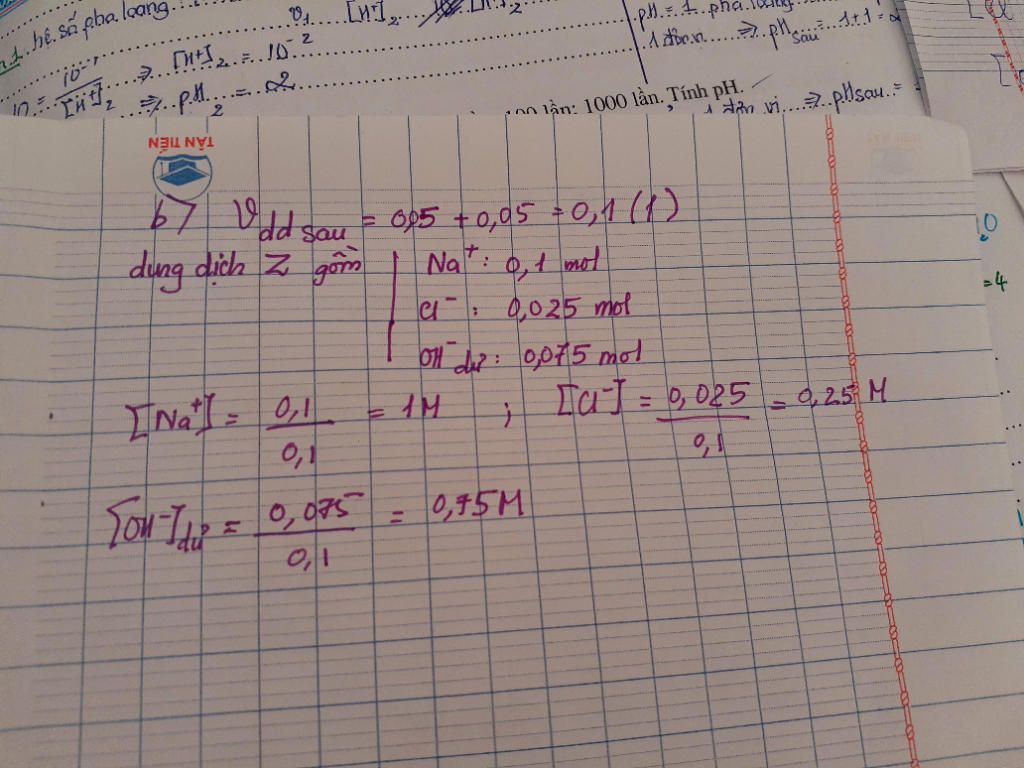 hệ số pha loãng
V1 [H+]2
10 = 10⁻¹/[H⁺]2 ⇒ [H+]2 = 10⁻²
⇒ pH2 = 2
pH = 1 pha loãng
1 đơn vị ⇒ pH sau = 1+1 = 2
100 lần; 1000 lần. Tính pH.
1 đơn vị ⇒ pH sau =
TÂN TIẾN
b/ Vdd sau = 0,05 + 0,05 = 0,1 (l)
dung dịch Z gồm
Na⁺ : 0,1 mol
Cl⁻ : 0,025 mol
OH⁻ dư : 0,075 mol
[Na⁺] = 0,1/0,1 = 1M ; [Cl⁻] = 0,025/0,1 = 0,25 M
[OH⁻]dư = 0,075/0,1 = 0,75M
=4